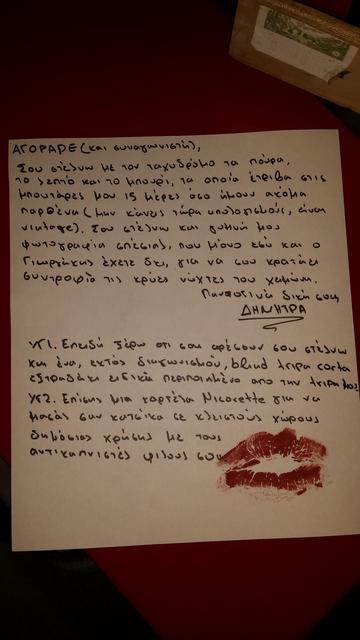 ΑΓΟΡΑΡΕ (και συναγωνιστή),
Σου στέλνω με τον ταχυδρόμο τα πούρα,
το λεπτό και το μπουρί, τα οποία έτριβα στις
μπουτάρες μου 15 μέρες όσο ήμουν ακόμα
παρθένα (μην κάνεις τώρα υπολογισμούς, είναι
vintage). Σου στέλνω και γυμνή μου
φωτογραφία επίσης, που μόνο εσύ και ο
Γιωργάκης έχετε δει, για να σου κρατάει
συντροφιά τις κρύες νύχτες του χειμώνα.
Παντοτινά δική σου,
ΔΗΜΗΤΡΑ
ΥΓ1. Επειδή ξέρω ότι σου αρέσουν σου στέλνω
και ένα, εκτός διαγωνισμού, blind tripa corta
εξτραδάκι ειδικά περιποιημένο από την tripa μου
ΥΓ2. Επίσης μια καρτέλα Nicorette για να
μασάς σαν κατσίκα σε κλειστούς χώρους
δημόσιας χρήσης με τους
αντικαπνιστές φίλους σου